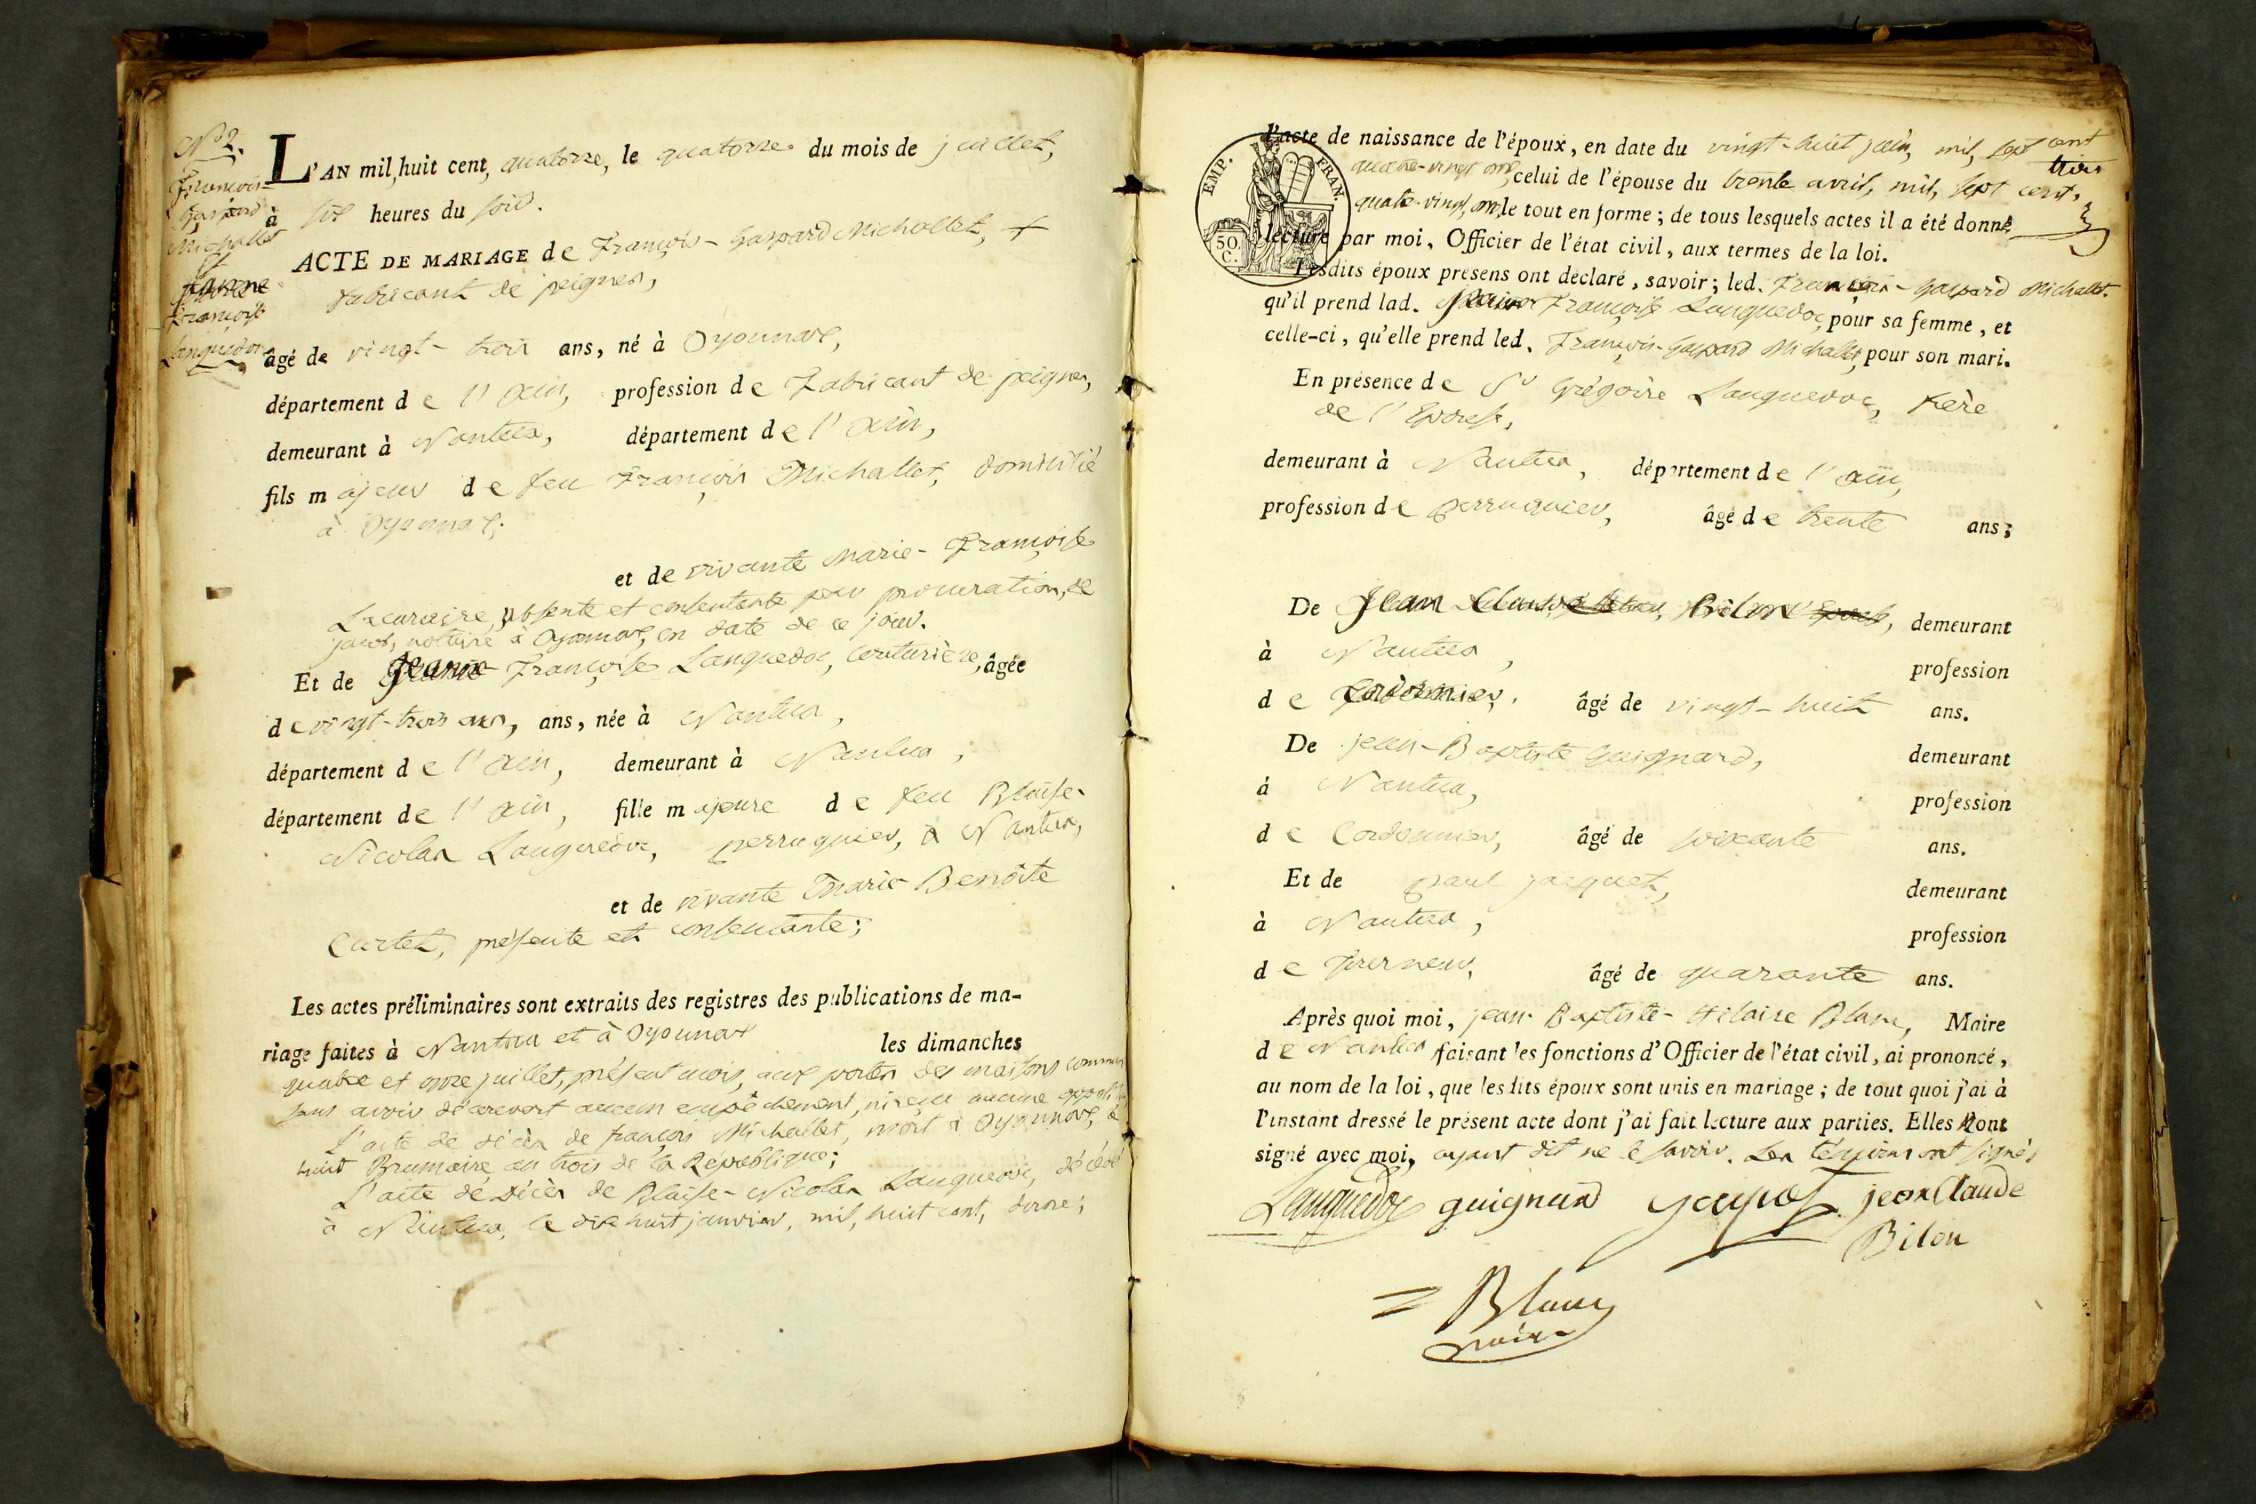 N.° 2.
François-
Gaspard
Michallet
et
Jeanne
Françoise
Languedoc
L'AN mil huit cent quatorze, le quatorze du mois de juillet,
à six heures du soir.
ACTE DE MARIAGE de François-Gaspard Michallet, +
fabricant de peignes,
âgé de vingt-trois ans, né à Oyonnax,
département de l'ain, profession de Fabricant de peignes,
demeurant à Nantua, département de l'ain,
fils majeur de feu François Michallet, domicilié
à Oyonnax;
et de vivante Marie-Françoise
absente et consentante par procuration, de
notaire à Oyonnax, en date de ce jour.
Et de Jeanne Françoise Languedoc, couturière, âgée
de vingt-trois ans, ans, née à Nantua,
département de l'ain, demeurant à Nantua,
département de l'ain, fille majeure de feu Blaise-
Nicolas Languedoc, perruquier, à Nantua,
et de vivante Marie Benoîte
Curtet, présente et consentante;
Les actes préliminaires sont extraits des registres des publications de ma-
riage faites à Nantua et à Oyonnax les dimanches
quatre et onze juillet, présent mois, aux portes des maisons communes
sans avoir découvert aucun empêchement, ni reçu aucune
L'acte de décès de françois Michallet, mort à Oyonnax, le
huit Brumaire an trois de la République;
L'acte de décès de Blaise-Nicolas Languedoc, décédé
à Nantua, le dix huit janvier, mil, huit cent, douze;
EMP. FRAN.
50. C.
l'acte de naissance de l'époux, en date du vingt-huit juin, mil, sept cent
quatre-vingt onze, celui de l'épouse du trente avril, mil, sept cent,
quatre-vingt, onze, le tout en forme; de tous lesquels actes il a été donné
lecture par moi, Officier de l'état civil, aux termes de la loi.
Lesdits époux présens ont déclaré, savoir; led. François-Gaspard Michallet.
qu'il prend lad. Jeanne Françoise Languedoc, pour sa femme, et
celle-ci, qu'elle prend led. François-Gaspard Michallet, pour son mari.
En présence de Sr Grégoire Languedoc, frère
de l'Epouse,
demeurant à Nantua, département de l'ain,
profession de perruquier, âgé de trente ans;
De Jean Claude Bilon, demeurant
à Nantua, profession
de Cordonnier, âgé de vingt-huit ans.
De jean-Baptiste Guignard, demeurant
à Nantua, profession
de Cordonnier, âgé de soixante ans.
Et de paul jacquet, demeurant
à Nantua, profession
de Tourneur, âgé de quarante ans.
Après quoi moi, jean-Baptiste-Hilaire Blanc, Maire
de Nantua faisant les fonctions d'Officier de l'état civil, ai prononcé,
au nom de la loi, que lesdits époux sont unis en mariage; de tout quoi j'ai à
l'instant dressé le présent acte dont j'ai fait lecture aux parties. Elles n'ont
signé avec moi, ayant dit ne le savoir. Les témoins ont signé;
Languedoc guignard jean Claude
Bilon
Blanc
maire